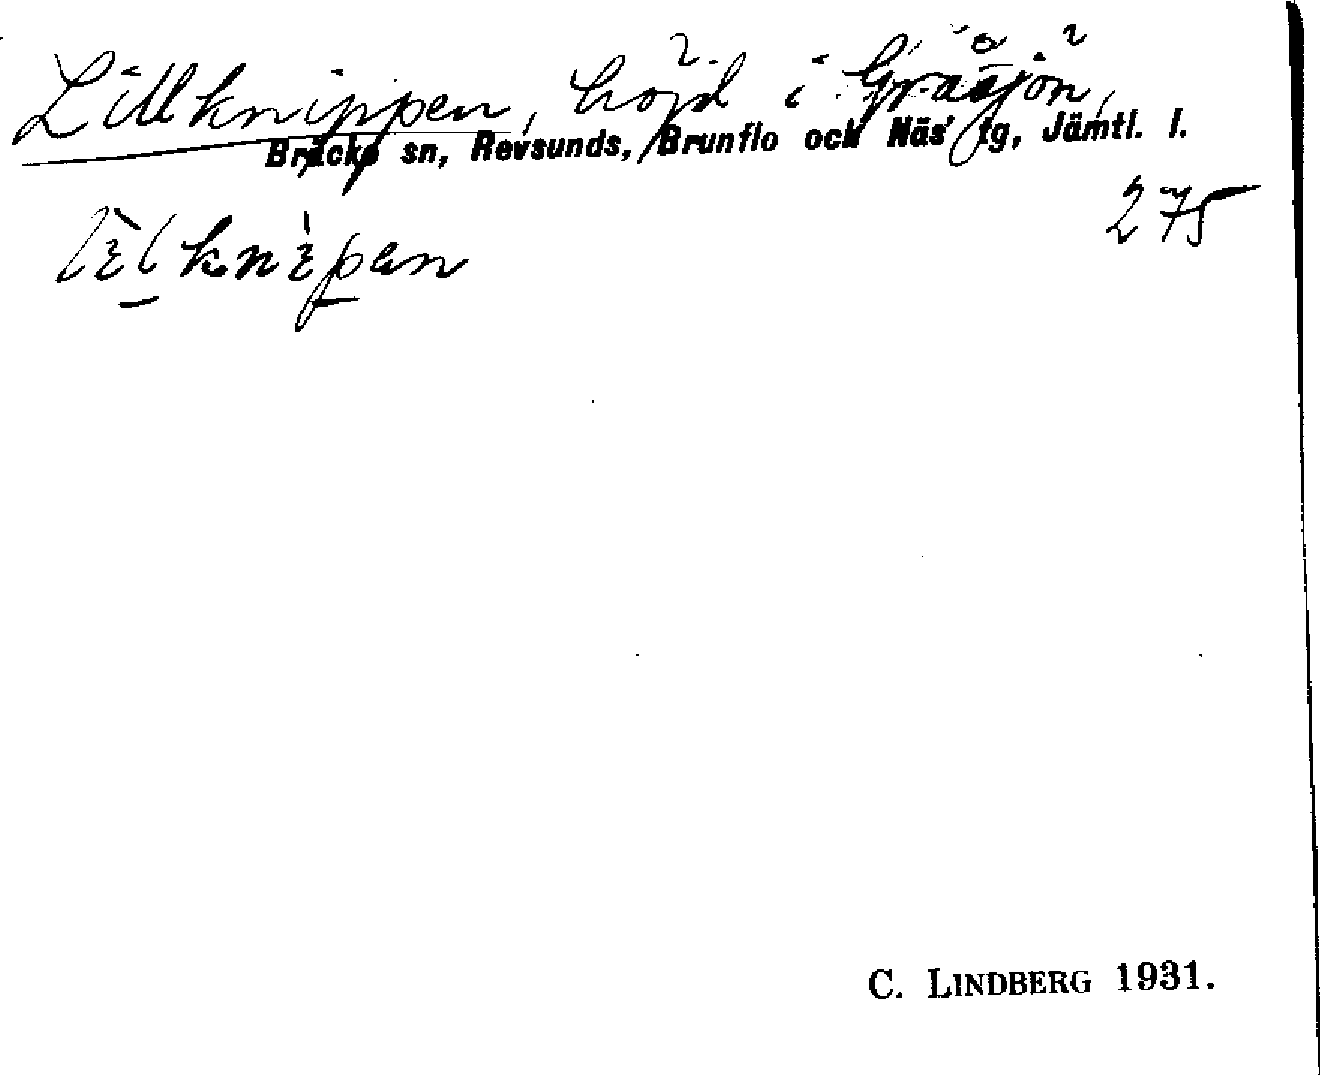 Lillknippen, höjd i Gråsjön,
Bräcke sn, Revsunds, Brunflo och Näs' tg, Jämtl. l.
275
C. LINDBERG 1931.